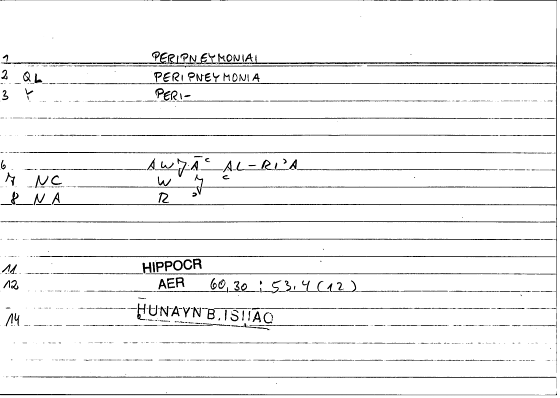 1 PERIPNEYMONIAI
2 QL PERIPNEYMONIA
3 Y PERI-
6 AWJĀᶜ AL-RIʾA
7 NC W J ᶜ
8 NA R ʾ
11 HIPPOCR
12 AER 60,30 : 53,4 (12)
14 HUNAYN B. ISḤĀQ